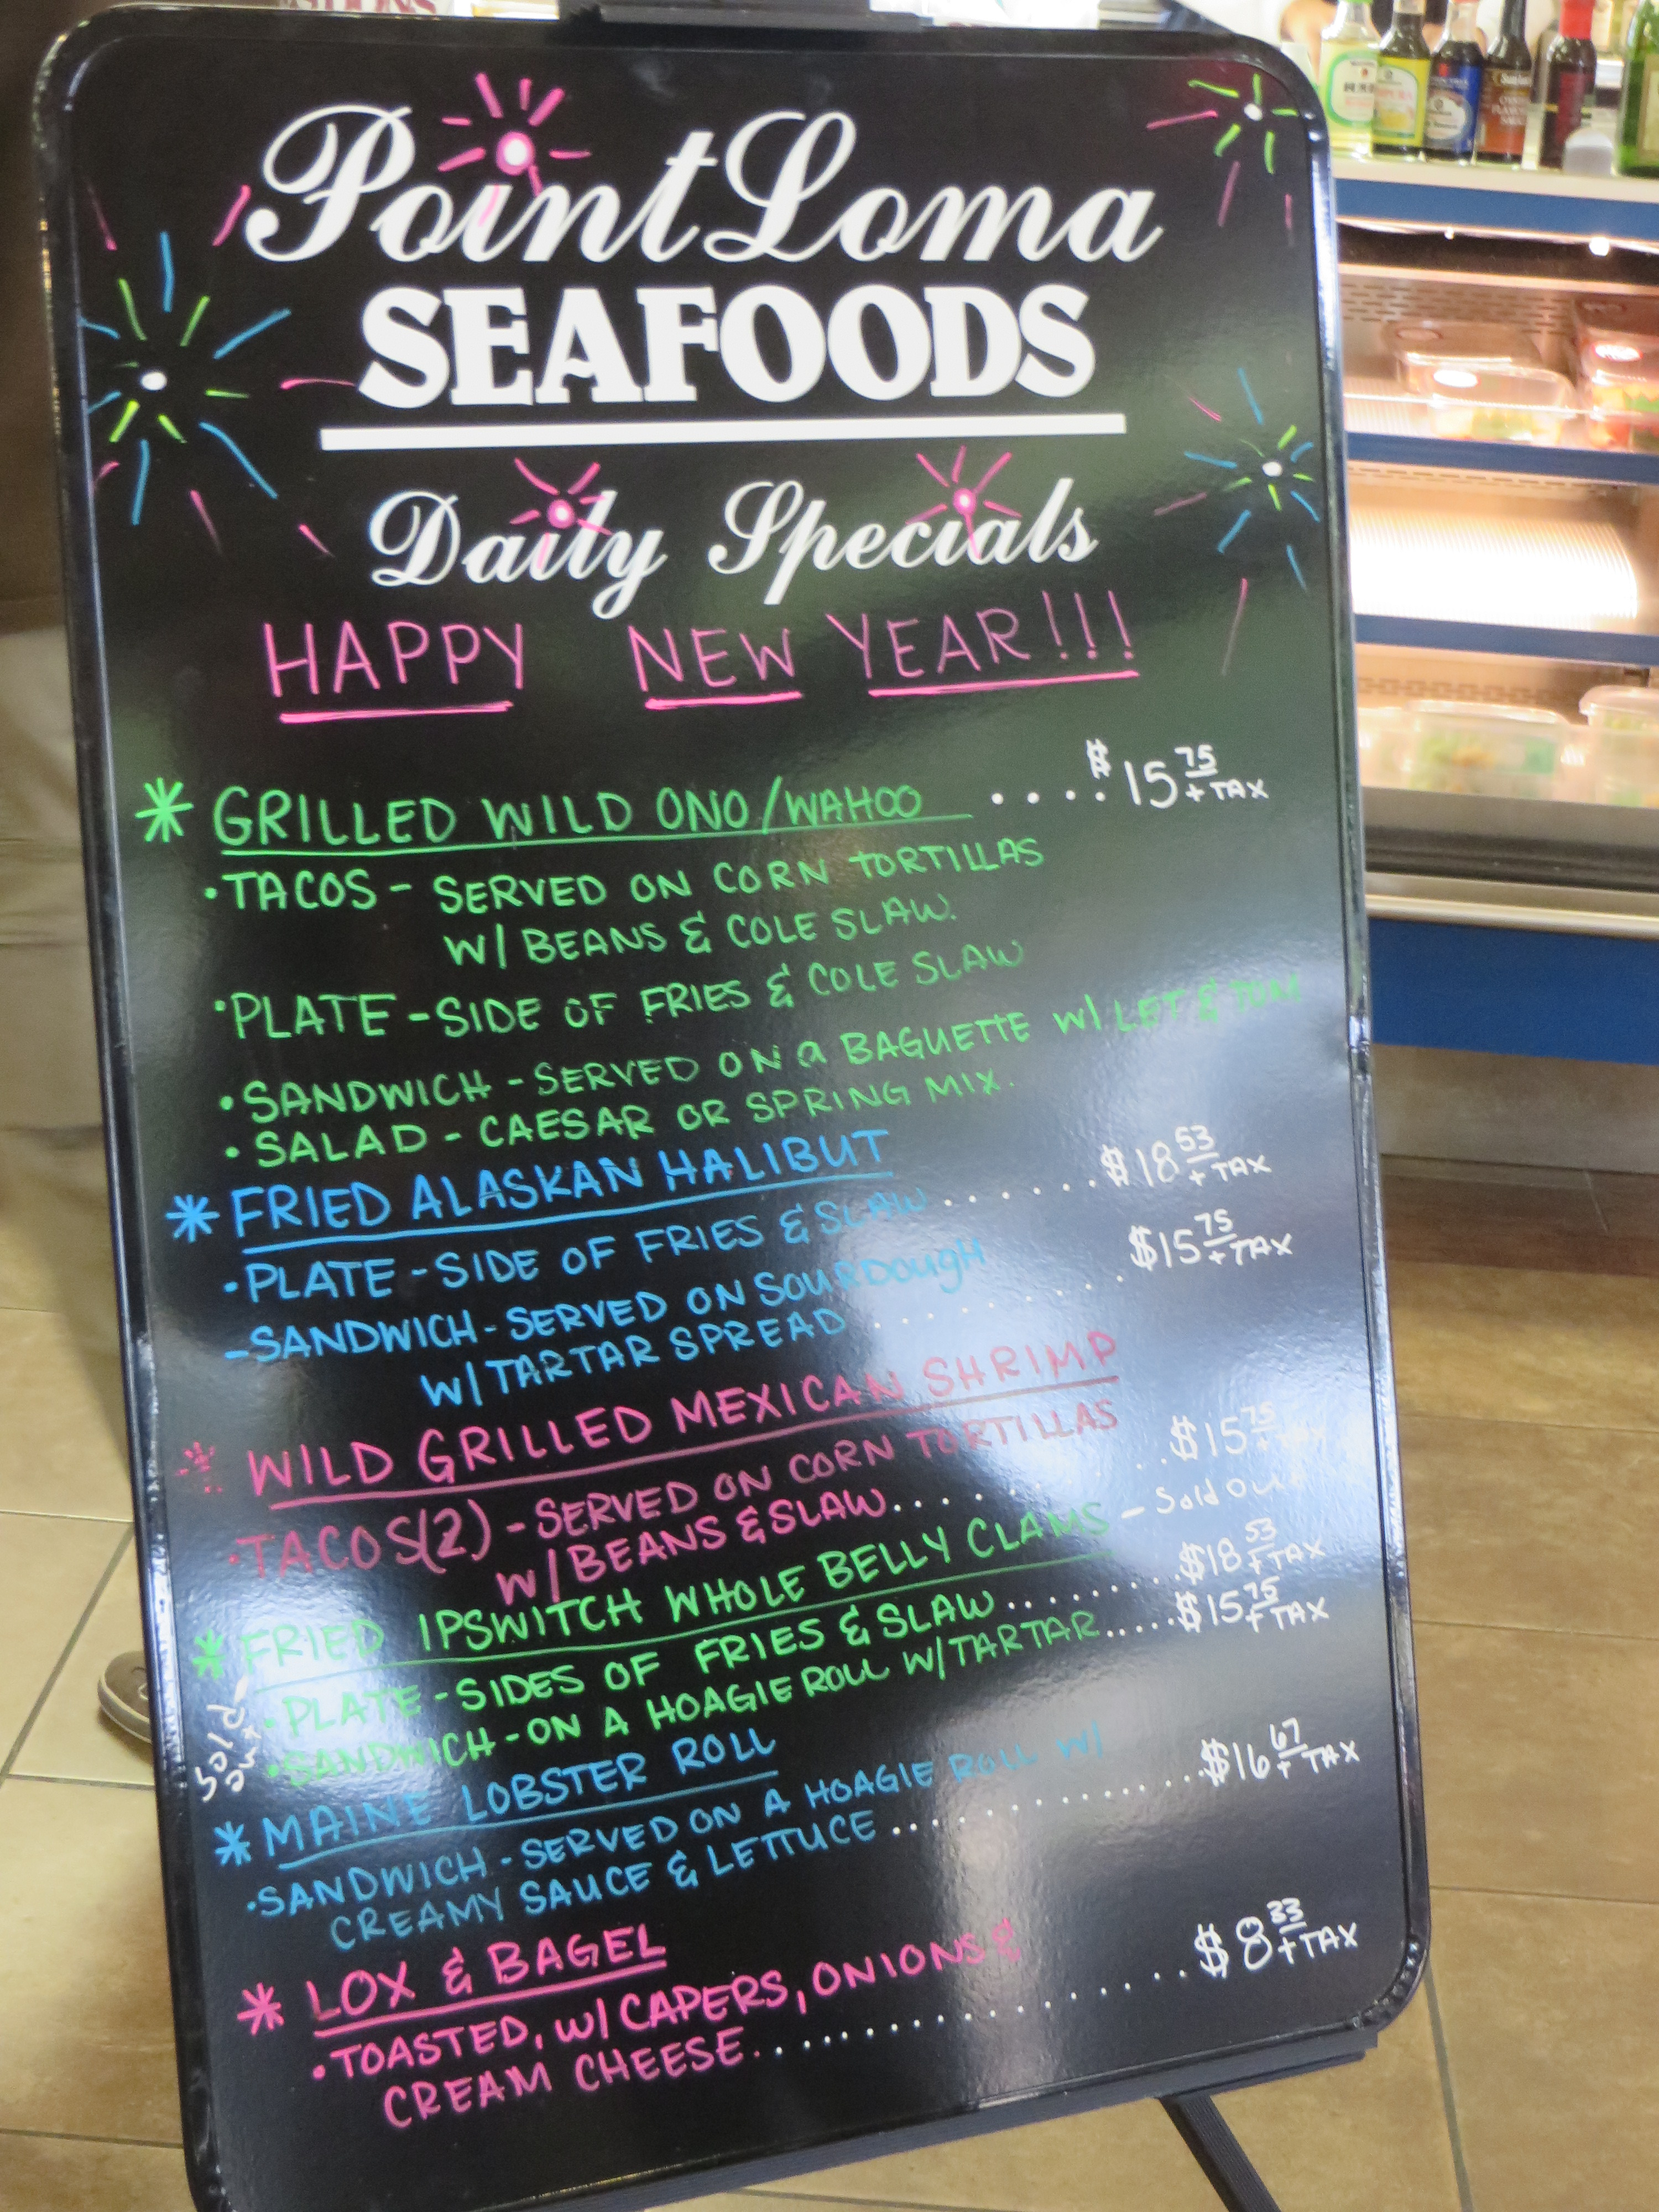 Point Loma
SEAFOODS
Daily Specials
HAPPY NEW YEAR!!!
* GRILLED WILD ONO/WAHOO .... $15 75 + TAX
• TACOS - SERVED ON CORN TORTILLAS
W/ BEANS & COLE SLAW.
• PLATE - SIDE OF FRIES & COLE SLAW
• SANDWICH - SERVED ON a BAGUETTE W/ LET & TOM
• SALAD - CAESAR OR SPRING MIX.
* FRIED ALASKAN HALIBUT
• PLATE - SIDE OF FRIES & SLAW ....... $18 53 + TAX
- SANDWICH - SERVED ON SOURDOUGH
W/ TARTAR SPREAD ........ $15 75 + TAX
* WILD GRILLED MEXICAN SHRIMP
• TACOS(2) - SERVED ON CORN TORTILLAS
W/ BEANS & SLAW........ $15 75 + TAX
* FRIED IPSWITCH WHOLE BELLY CLAMS - Sold Out
• PLATE - SIDES OF FRIES & SLAW........ $18 53 + TAX
• SANDWICH - ON A HOAGIE ROLL W/ TARTAR..... $15 75 + TAX
Sold out
* MAINE LOBSTER ROLL
• SANDWICH - SERVED ON A HOAGIE ROLL W/
CREAMY SAUCE & LETTUCE ............... $16 67 + TAX
* LOX & BAGEL
• TOASTED, W/ CAPERS, ONIONS &
CREAM CHEESE................. $8 33 + TAX